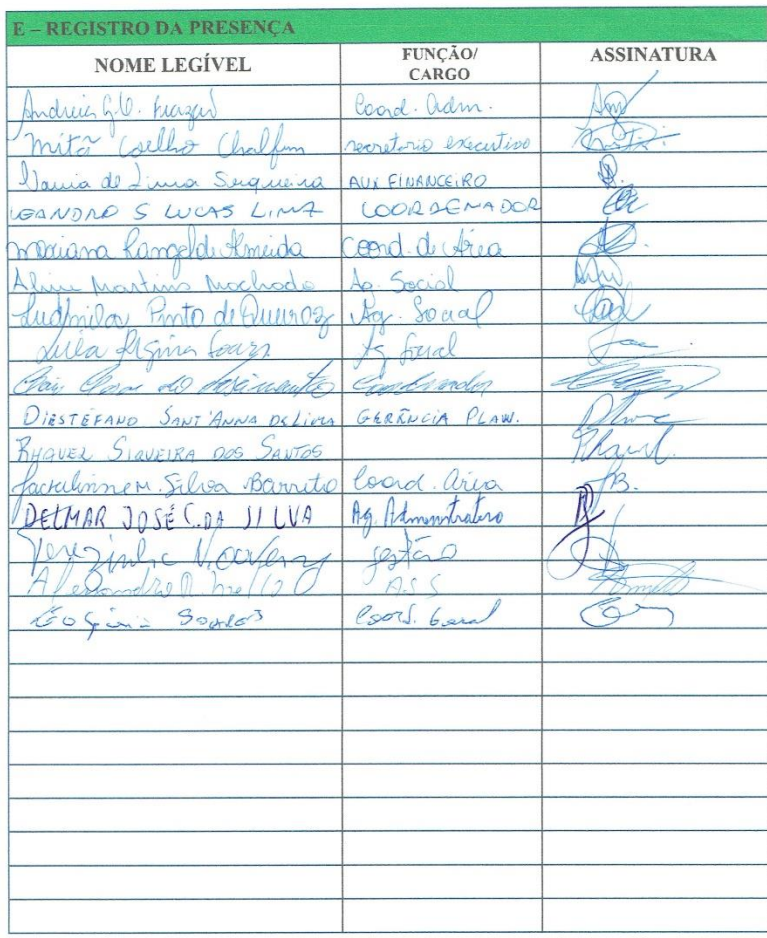 E – REGISTRO DA PRESENÇA
NOME LEGÍVEL FUNÇÃO/ CARGO ASSINATURA
Andreia G.V. Frazão Coord. Adm.
Mitã Coelho Chalfun secretario executivo
Vania de Lima Siqueira AUX FINANCEIRO
LEANDRO S LUCAS LIMA COORDENADOR
Mariana Rangel de Almeida Coord. de Área
Aline Martins Machado Ag. Social
Ludmila Pinto de Queiroz Ag. Social
Regina Ag Social
do Nascimento Coordenador
DIESTEFANO SANT'ANNA DE LIMA GERÊNCIA PLAN.
RHAQUEL SIQUEIRA DOS SANTOS
Jackelinne M. Silva Barreto Coord. Área JB.
DELMAR JOSÉ C. DA SILVA Ag. Administrativo
Terezinha gestão
Alessandro ASS
Soares Coord. Geral